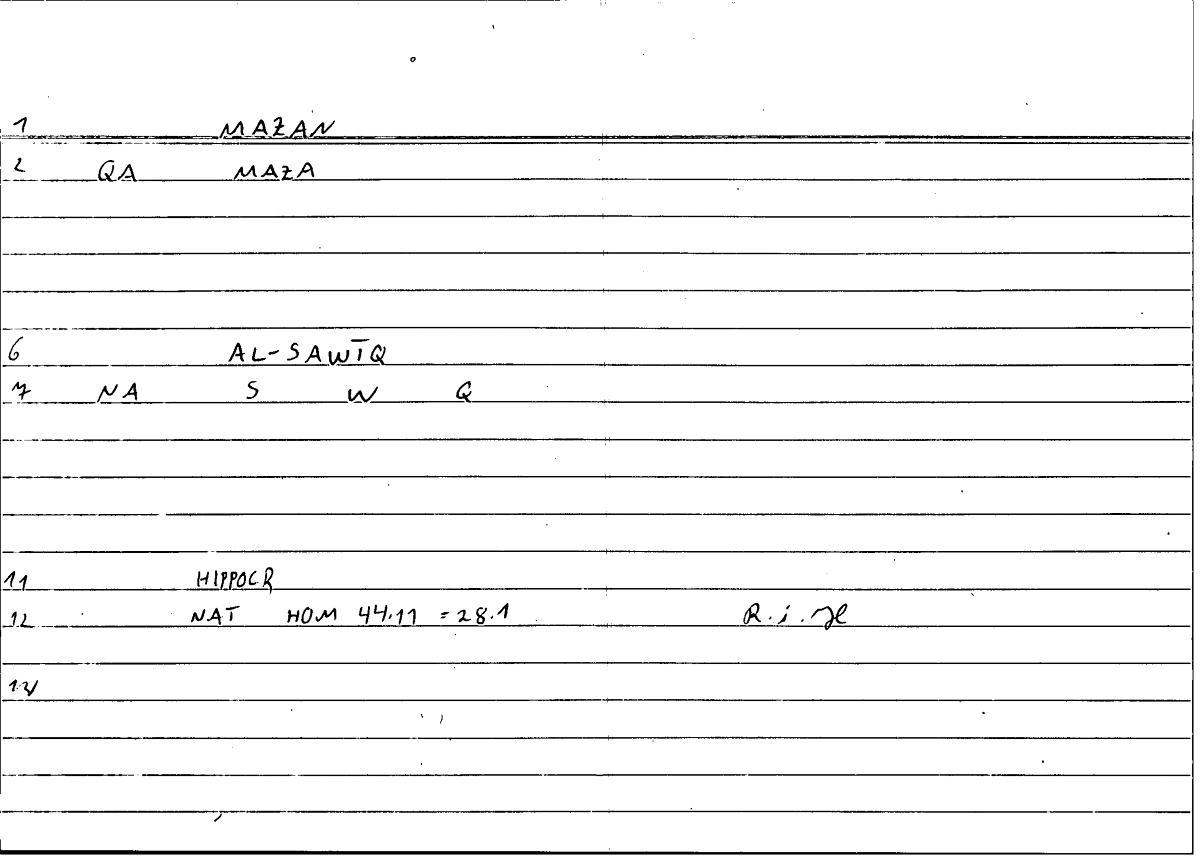 1 MAZAN
2 QA MAZA
6 AL-SAWĪQ
7 NA S W Q
11 HIPPOCR
12 NAT HOM 44.11 = 28.1 R. i. H